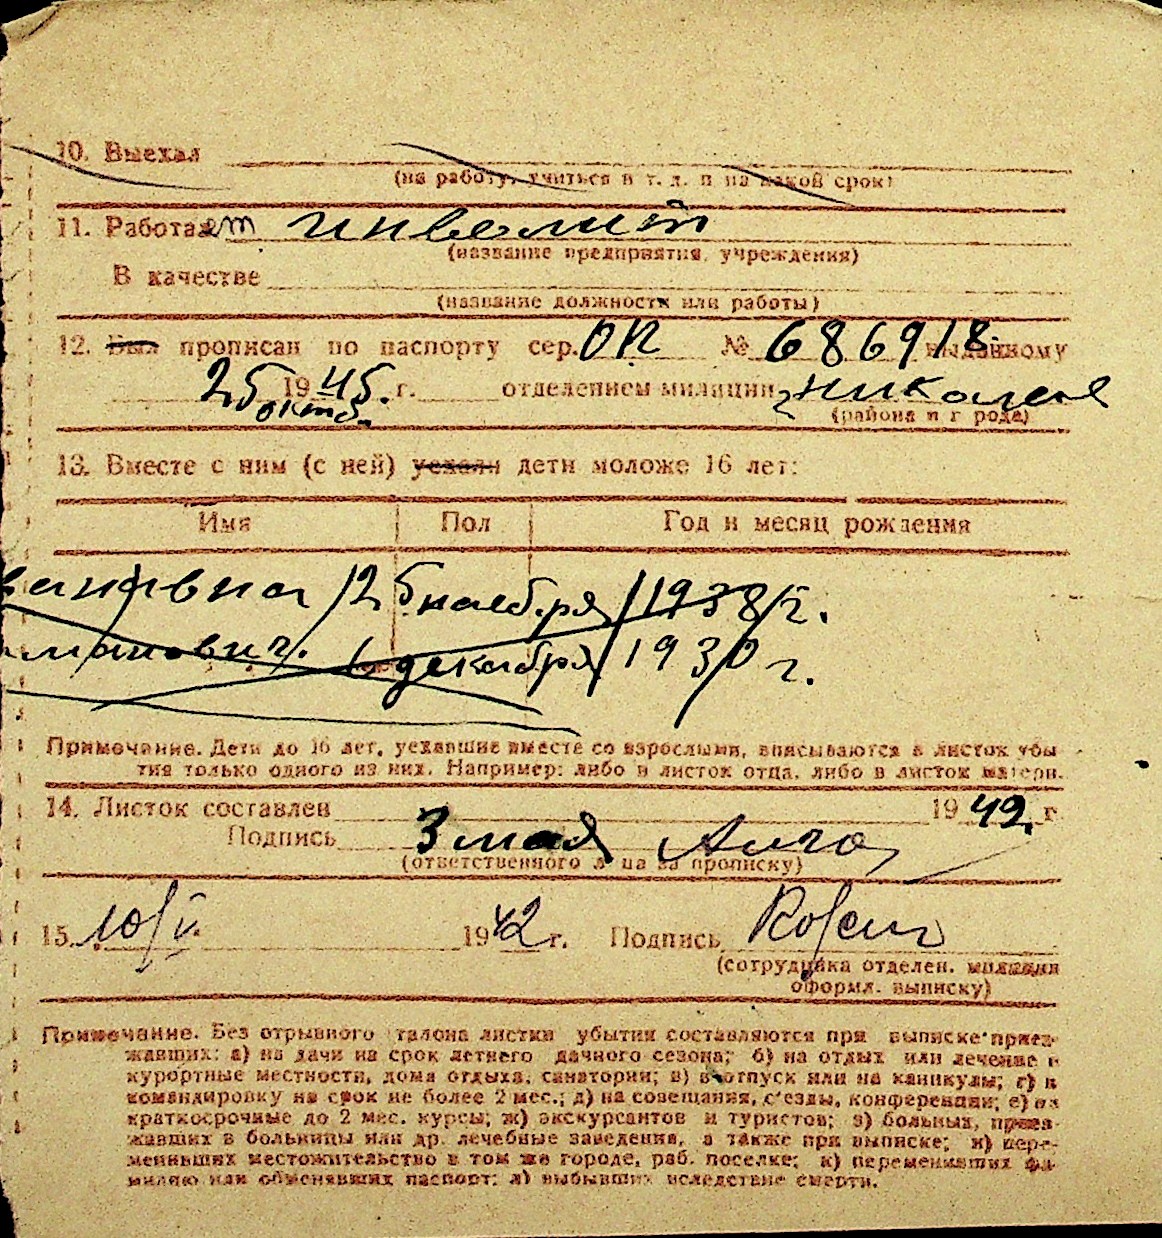 10. Выехал
(на работу, учиться и т. д. и на какой срок)
11. Работает инвелит
(название предприятия, учреждения)
В качестве
(название должности или работы)
12. Был прописан по паспорту сер. ОК № 686918 выданному
25 октб. 1945. г. отделением милиции г Николаев
(района и г рода)
13. Вместе с ним (с ней) уехали дети моложе 16 лет:
Имя Пол Год и месяц рождения
12 5 ноября 1938 г.
6 декабря 1930 г.
Примечание. Дети до 16 лет, уехавшие вместе со взрослыми, вписываются в листок убы
тия только одного из них. Например: либо в листок отца, либо в листок матери.
14. Листок составлен 1949. г
Подпись 3 мая
(ответственного л ца за прописку)
15. 10/V 1942 г. Подпись
(сотрудника отделен. милиции
оформл. выписку)
Примечание. Без отрывного талона листки убытия составляются при выписке приез-
жавших: а) на дачи на срок летнего дачного сезона; б) на отдых или лечение в
курортные местности, дома отдыха, санатории; в) в отпуск или на каникулы; г) в
командировку на срок не более 2 мес.; д) на совещания, с'езды, конференции; е) на
краткосрочные до 2 мес. курсы; ж) экскурсантов и туристов; з) больных, приез-
жавших в больницы или др. лечебные заведения, а также при выписке; и) пере-
менивших местожительство в том же городе, раб. поселке; к) переменивших фа-
милию или обменявших паспорт; л) выбывших вследствие смерти.